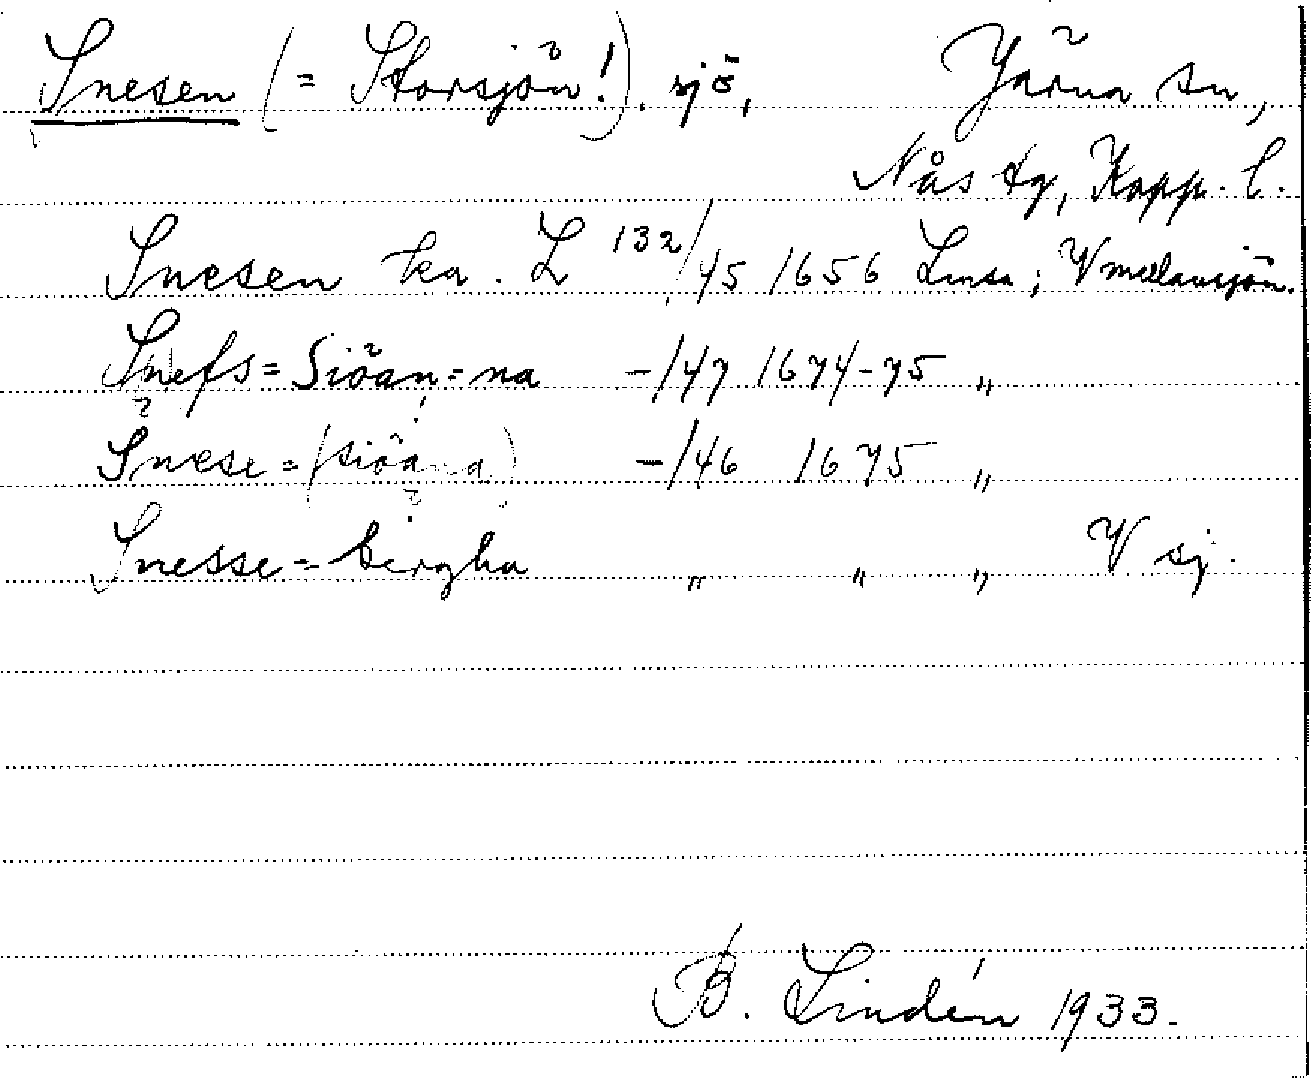 Snesen (= Storsjön!). sjö, Järna sn,
Nås tg, Kopp. l.
Snesen ka. L 132/45 1656 Lmsa; V mellansjön.
Snefs=Siöan=na -/47 1674-75 "
Snese=(siöana) -/46 1675 "
Snesse=bergha " " " V sj.
B. Lindén 1933.